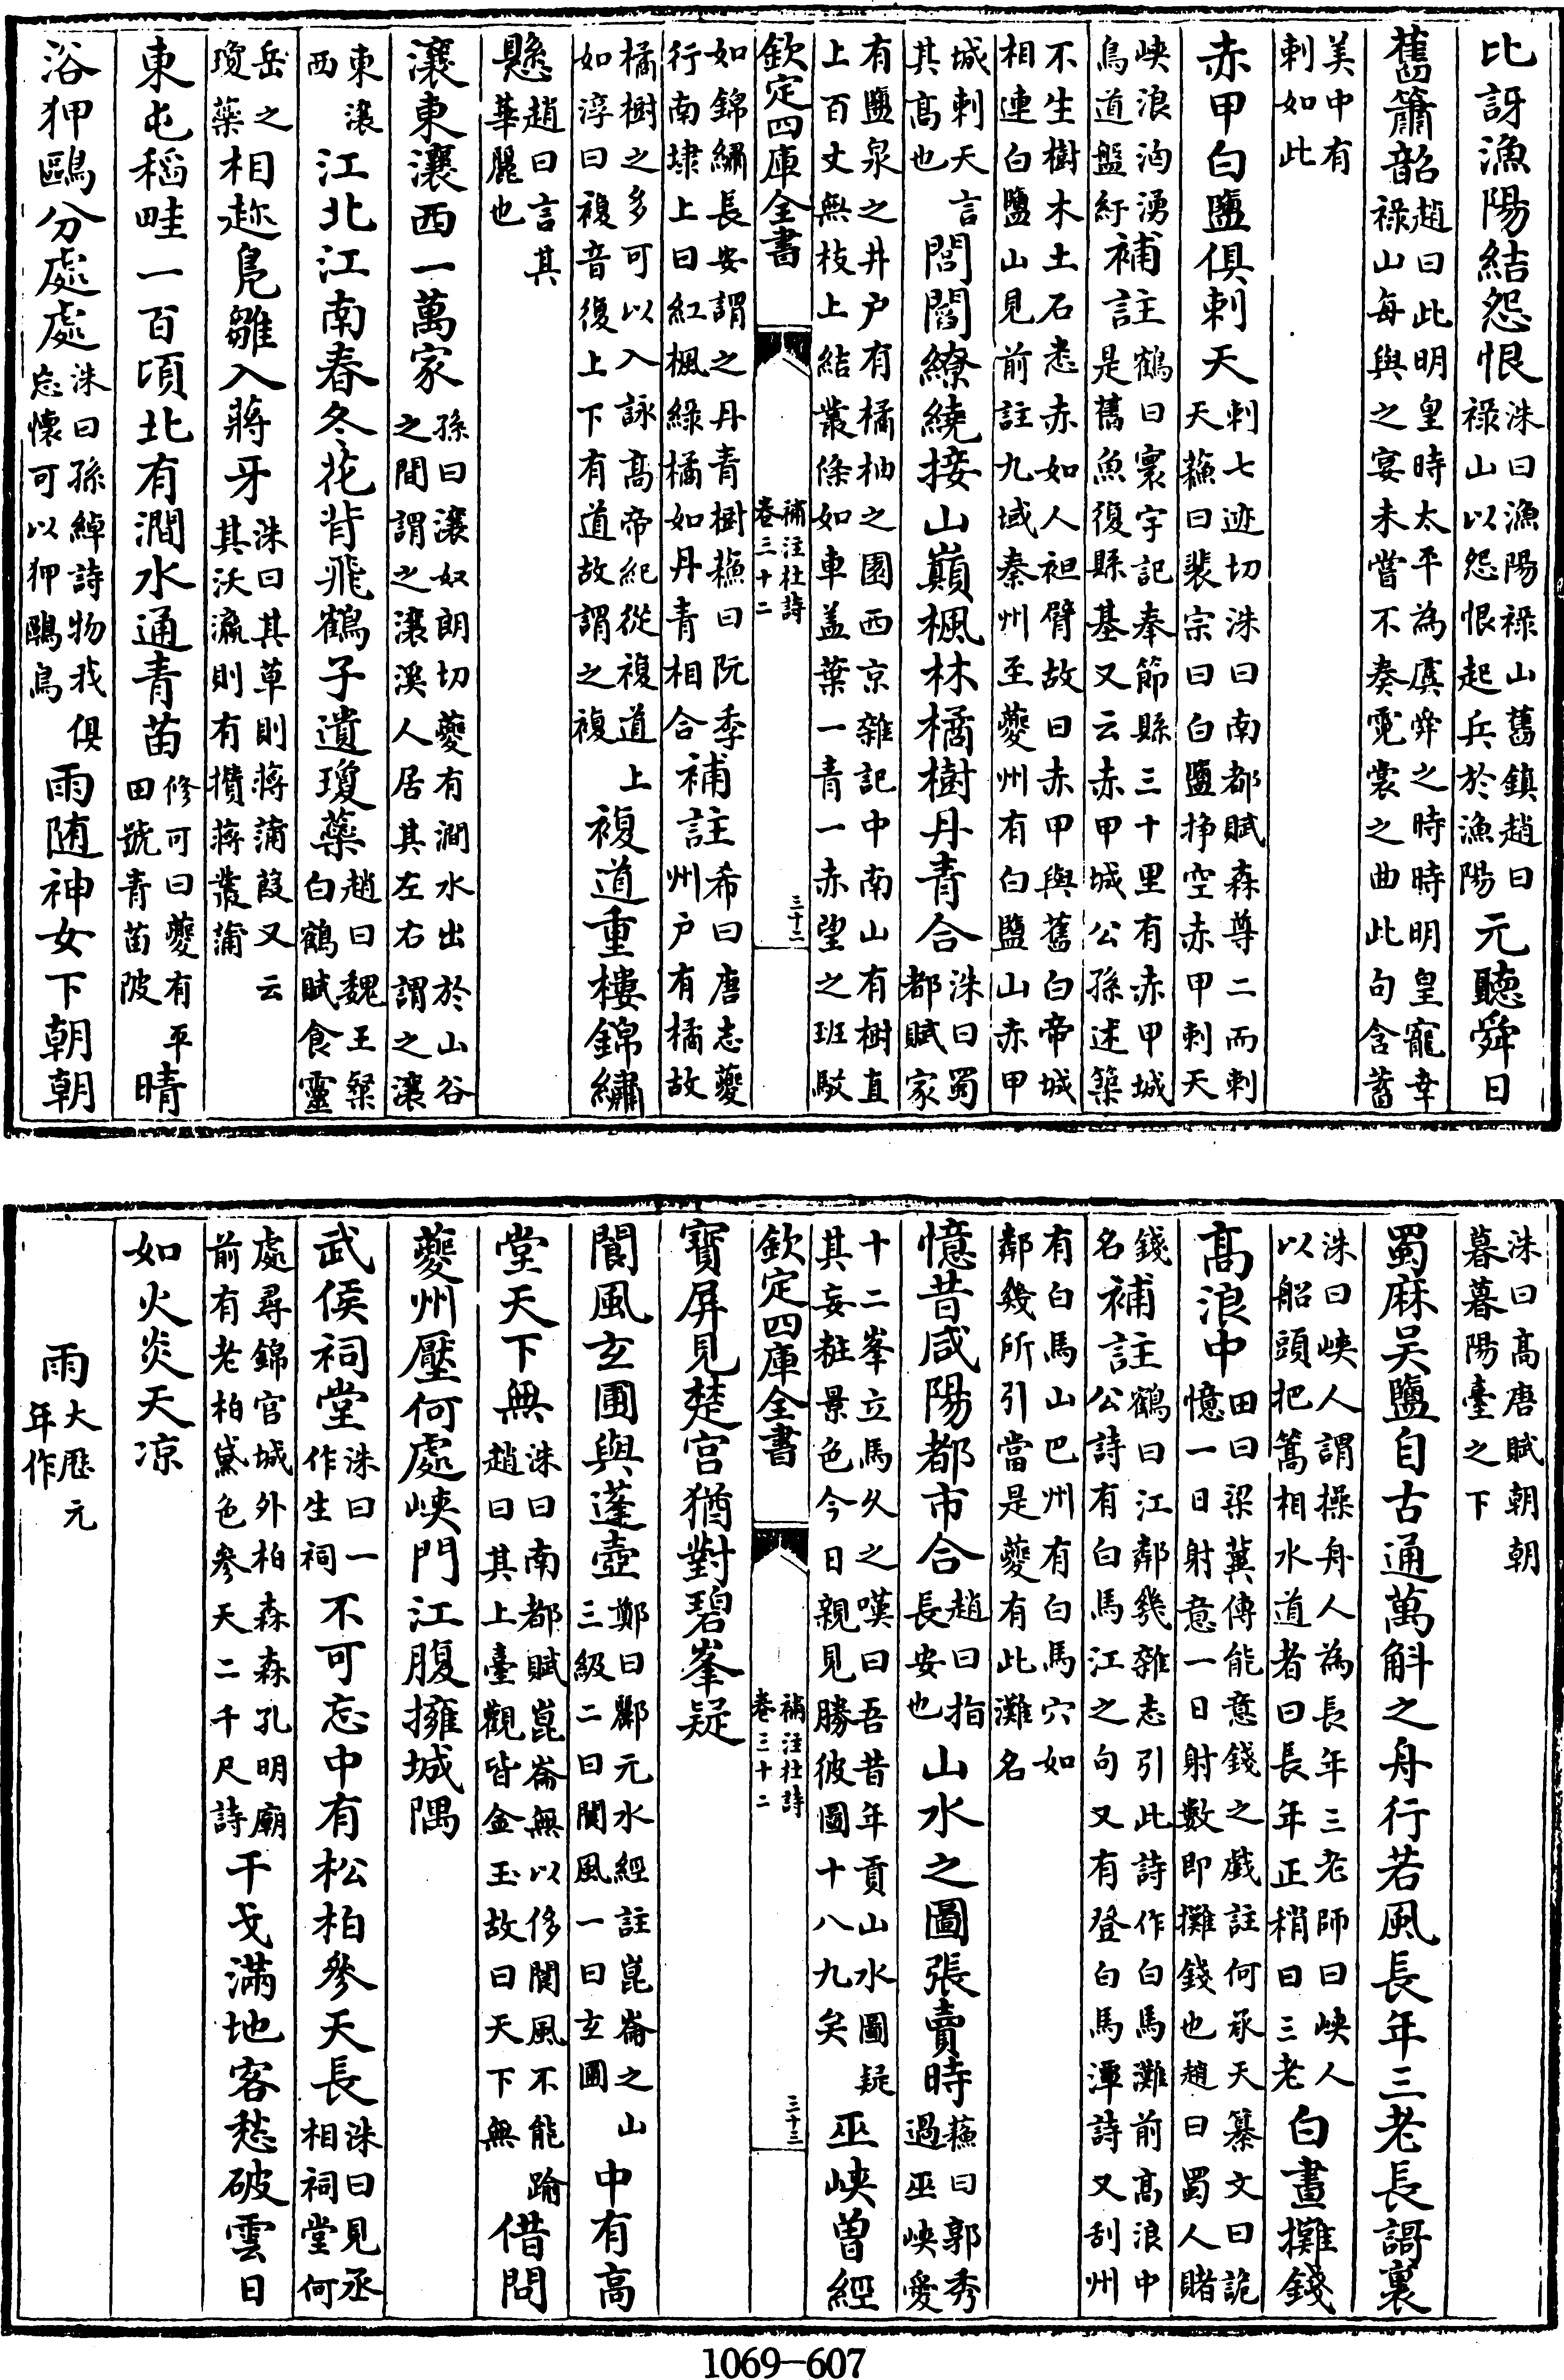 比訝漁陽結怨恨洙曰漁陽祿山舊鎮趙曰祿山以怨恨起兵於漁陽元聽舜日
舊簫韶趙曰此明皇時太平為虞舜之時時明皇寵幸祿山每與之宴未嘗不奏霓裳之曲此句含蓄
美中有刺如此
赤甲白鹽俱刺天刺七迹切洙曰南都賦森尊二而刺天蘓曰裴宗曰白鹽掙空赤甲刺天
峽浪洶湧鳥道盤紆補註鶴曰寰宇記奉節縣三十里有赤甲城是舊魚復縣基又云赤甲城公孫述築
不生樹木土石悉赤如人袒臂故曰赤甲與舊白帝城相連白鹽山見前註九域秦州至夔州有白鹽山赤甲
城刺天言其髙也閭閻繚繞接山巔楓林橘樹丹青合洙曰蜀都賦家
有鹽泉之井戶有橘柚之園西京雜記中南山有樹直上百丈無枝上結叢條如車盖葉一青一赤望之班駁
欽定四庫全書
補注杜詩
卷三十二
三十二
如錦繡長安謂之丹青樹蘓曰阮季行南埭上曰紅楓綠橘如丹青相合補註希曰唐志夔州戶有橘故
橘樹之多可以入詠髙帝紀從複道上如淳曰複音復上下有道故謂之複複道重樓錦繡
懸趙曰言其華麗也
瀼東瀼西一萬家孫曰瀼奴朗切夔有澗水出於山谷之間謂之瀼溪人居其左右謂之瀼
東瀼西江北江南春冬花背飛鶴子遺瓊蘂趙曰魏王粲白鶴賦食靈
岳之瓊蘂相趂鳬雛入蔣牙洙曰其草則蔣蒲葭又云其沃瀛則有攢蔣叢蒲
東屯稻畦一百頃北有澗水通青苗修可曰夔有平田號青苗陂晴
浴狎鷗分處處洙曰孫綽詩物我俱忘懷可以狎鷗鳥雨随神女下朝朝
洙曰髙唐賦朝朝暮暮陽臺之下
蜀麻吳鹽自古通萬斛之舟行若風長年三老長謌裏
洙曰峽人謂操舟人為長年三老師曰峽人以船頭把篙相水道者曰長年正稍曰三老白晝攤錢
髙浪中田曰梁冀傳能意錢之戲註何承天纂文曰詭憶一曰射意一曰射數即攤錢也趙曰蜀人賭
錢名補註鶴曰江鄰幾雜志引此詩作白馬灘前髙浪中公詩有白馬江之句又有登白馬潭詩又刮州
有白馬山巴州有白馬穴如鄰幾所引當是夔有此灘名
憶昔咸陽都市合趙曰指長安也山水之圖張賣時蘓曰郭秀過巫峽愛
十二峯立馬久之嘆曰吾昔年貢山水圖疑其妄粧景色今日親見勝彼圖十八九矣巫峽曽經
欽定四庫全書
補注杜詩
卷三十二
三十三
寳屏見楚宫猶對碧峯疑
閬風玄圃與蓬壺鄭曰酈元水經註崑崙之山三級二曰閬風一曰玄圃中有髙
堂天下無洙曰南都賦崑崙無以侈閬風不能踰趙曰其上臺觀皆金玉故曰天下無借問
夔州壓何處峽門江腹擁城隅
武侯祠堂洙曰一作生祠不可忘中有松柏參天長洙曰見丞相祠堂何
處尋錦官城外柏森森孔明廟前有老柏黛色參天二千尺詩干戈滿地客愁破雲日
如火炎天凉
雨大厯元年作
1069—607